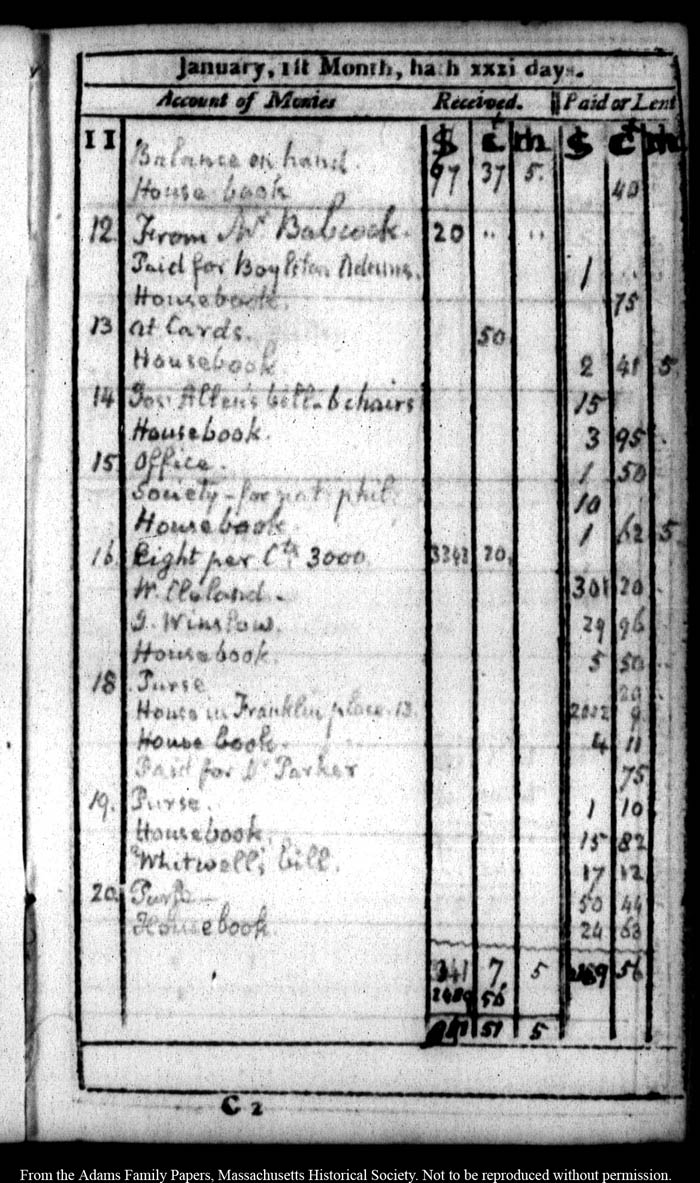 January, 1st Month, hath xxxi days.
Account of Monies Received. Paid or Lent
$ c m $ c m
11 Balance on hand. 97 37 5.
House book 40
12 From Mr Babcock. 20 .. ..
Paid for Boylston Adams. 1 ..
Housebook. 75
13 at Cards. 50
Housebook 2 41 5
14 Allen's bill - 6 chairs 15
Housebook. 3 95
15 Office. 1 50
Society - for nat. phil: 10
Housebook. 1 62 5
16 Eight per Cts 3000. 20.
W. Cleland. 301 20
I. Winslow. 29 96
Housebook. 5 50
18 Purse 20
House in Franklin place. 13. 9
House book. 4 11
Paid for Dr Parker 75
19. Purse. 1 10
Housebook. 15 82
Whitwell's bill. 17 12
20 Purse 50 44
Housebook. 24 63
7 5 56
56
51 5
C 2
From the Adams Family Papers, Massachusetts Historical Society. Not to be reproduced without permission.